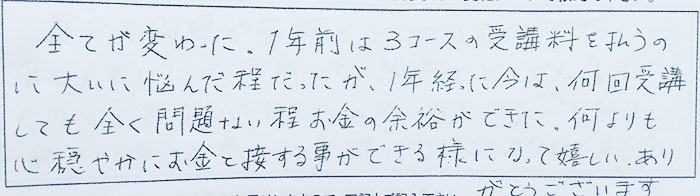 全てが変わった。1年前は3コースの受講料を払うの
に大いに悩んだ程だったが、1年経った今は、何回受講
しても全く問題ない程お金の余裕ができた。何よりも
心穏やかにお金と接する事ができる様になって嬉しい。あり
がとうございます